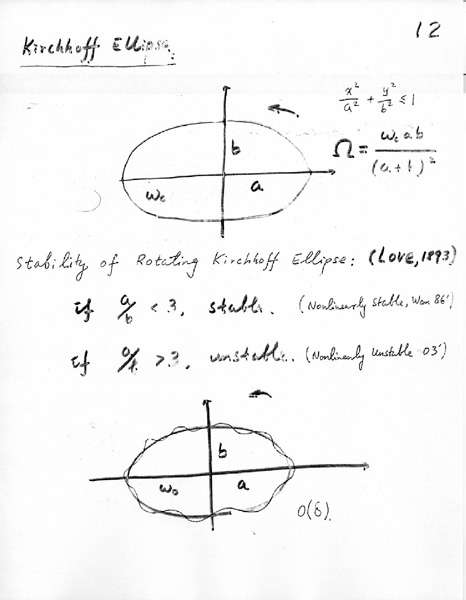 12
Kirchhoff Ellipse:
x²/a² + y²/b² ≤ 1
Ω = ω₀ab/(a+b)²
b
ω₀ a
Stability of Rotating Kirchhoff Ellipse: (Love, 1893)
if a/b < 3, stable. (Nonlinearly stable, Wan 86')
if a/b > 3, unstable. (Nonlinearly Unstable 03')
b
ω₀ a
O(δ).